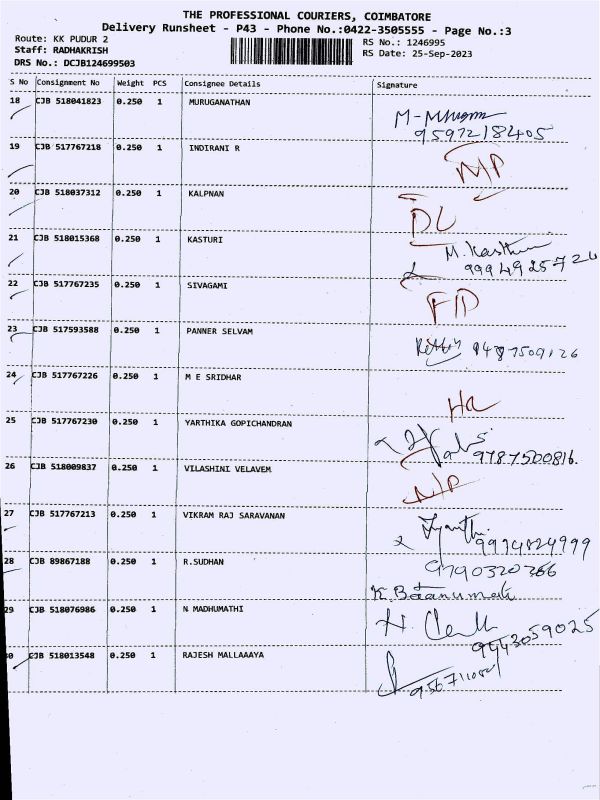 THE PROFESSIONAL COURIERS, COIMBATORE
Delivery Runsheet - P43 - Phone No.:0422-3505555 - Page No.:3
Route: KK PUDUR 2
RS No.: 1246995
Staff: RADHAKRISH
RS Date: 25-Sep-2023
DRS No.: DCJB124699503
S No Consignment No Weight PCS Consignee Details Signature
18 CJB 518041823 0.250 1 MURUGANATHAN
9597218405
19 CJB 517767218 0.250 1 INDIRANI R
20 CJB 518037312 0.250 1 KALPNAN DL
21 CJB 518015368 0.250 1 KASTURI M. Kasthuri
9994925724
22 CJB 517767235 0.250 1 SIVAGAMI
23 CJB 517593588 0.250 1 PANNER SELVAM 9487509126
24 CJB 517767226 0.250 1 M E SRIDHAR
25 CJB 517767230 0.250 1 YARTHIKA GOPICHANDRAN
9787500816
26 CJB 518009837 0.250 1 VILASHINI VELAVEM
27 CJB 517767213 0.250 1 VIKRAM RAJ SARAVANAN
9994824999
28 CJB 89867188 0.250 1 R.SUDHAN 9790320366
29 CJB 518076986 0.250 1 N MADHUMATHI
9443059025
CJB 518013548 0.250 1 RAJESH MALLAAAYA